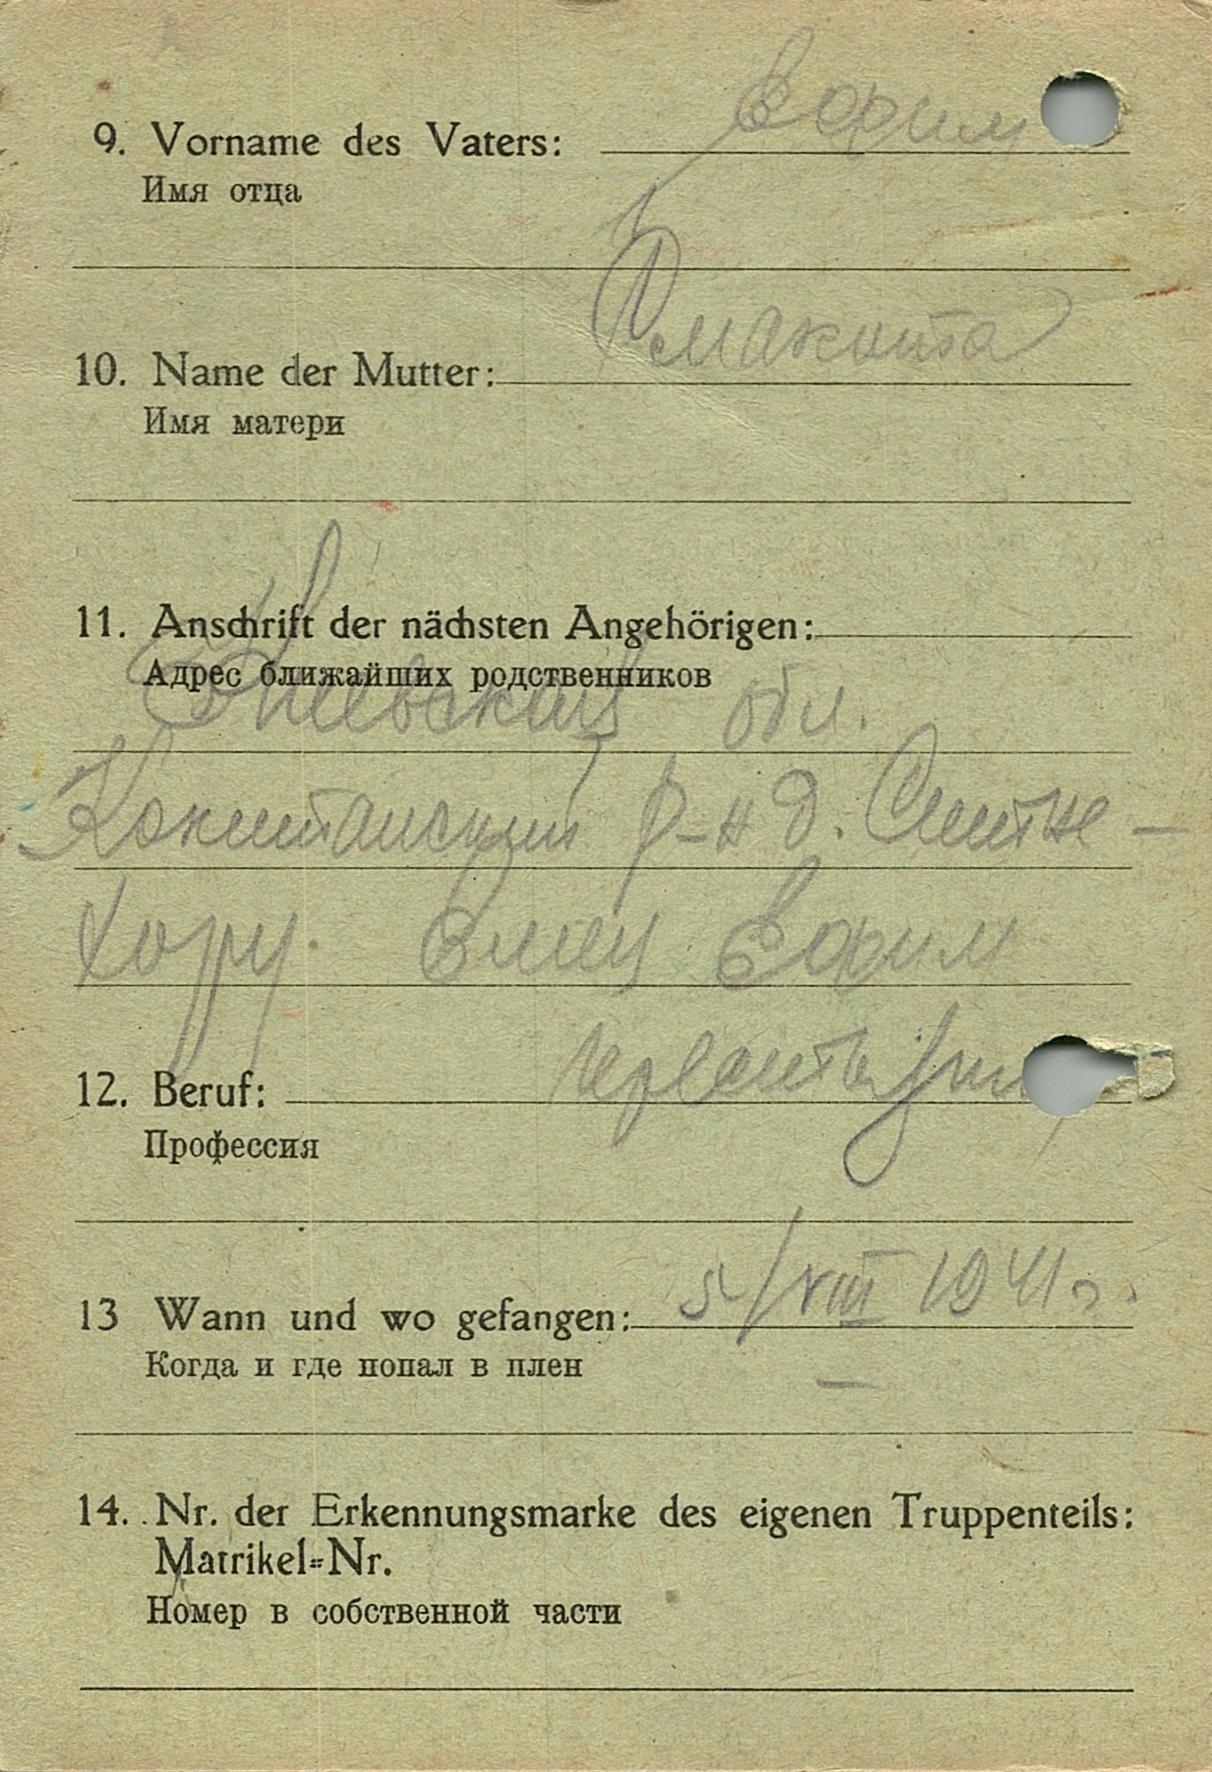 9. Vorname des Vaters: Ворим
Имя отца
10. Name der Mutter:
Имя матери
11. Anschrift der nächsten Angehörigen:
Адрес ближайших родственников
Киевская обл.
р-н д.
Ворим
12. Beruf:
Профессия
13 Wann und wo gefangen: 5/VIII 1941 г.
Когда и где попал в плен
—
14. Nr. der Erkennungsmarke des eigenen Truppenteils:
Matrikel=Nr.
Номер в собственной части